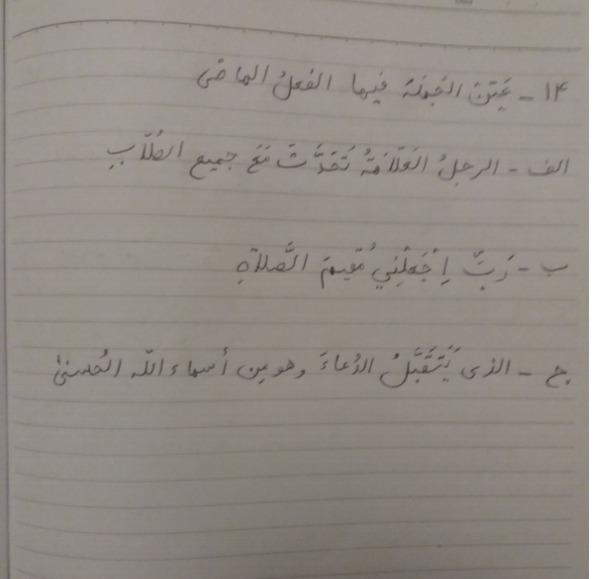 ۱۴ - عَيِّنْ الجُملَةَ فيها الفعلُ الماضی
الف - الرجلُ العَلّامَةُ تَحَدَّثَ مَعَ جميع الطُلّابِ
ب - رَبِّ اِجْعَلْنِي مُقيمَ الصَّلاةِ
ج - الذی يَتَقَبَّلُ الدُعاءَ وهو مِن أسماء اللّه الحُسنیٰ